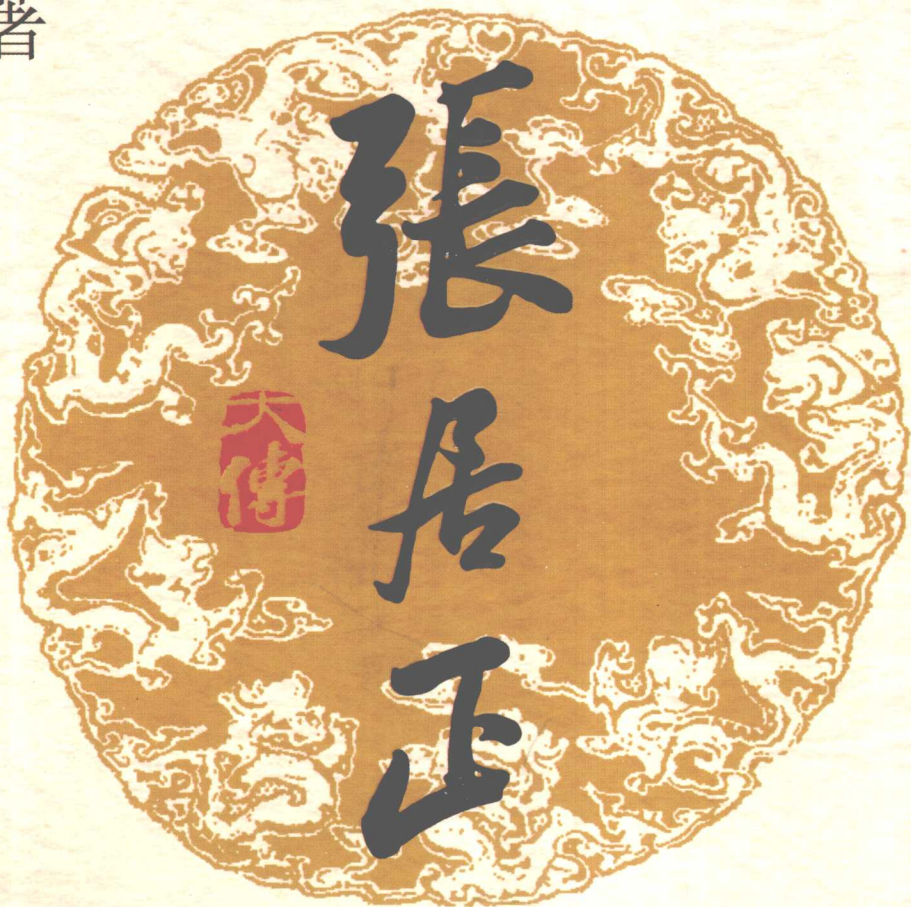 者
張居正
大傳